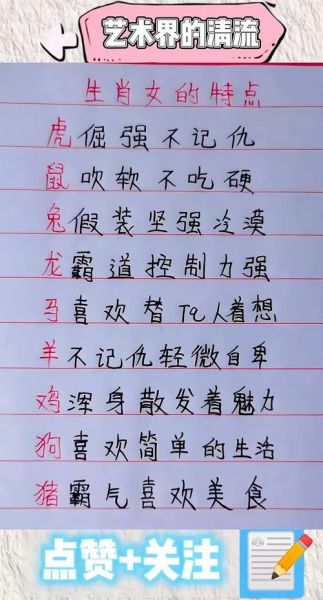 艺术界的清流
生肖女的特点
虎倔强不记仇
鼠吹软不吃硬
兔假装坚强冷漠
龙霸道控制力强
马喜欢替他人着想
羊不记仇轻微自卑
鸡浑身散发着魅力
狗喜欢简单的生活
猪霸气喜欢美食
点赞+关注